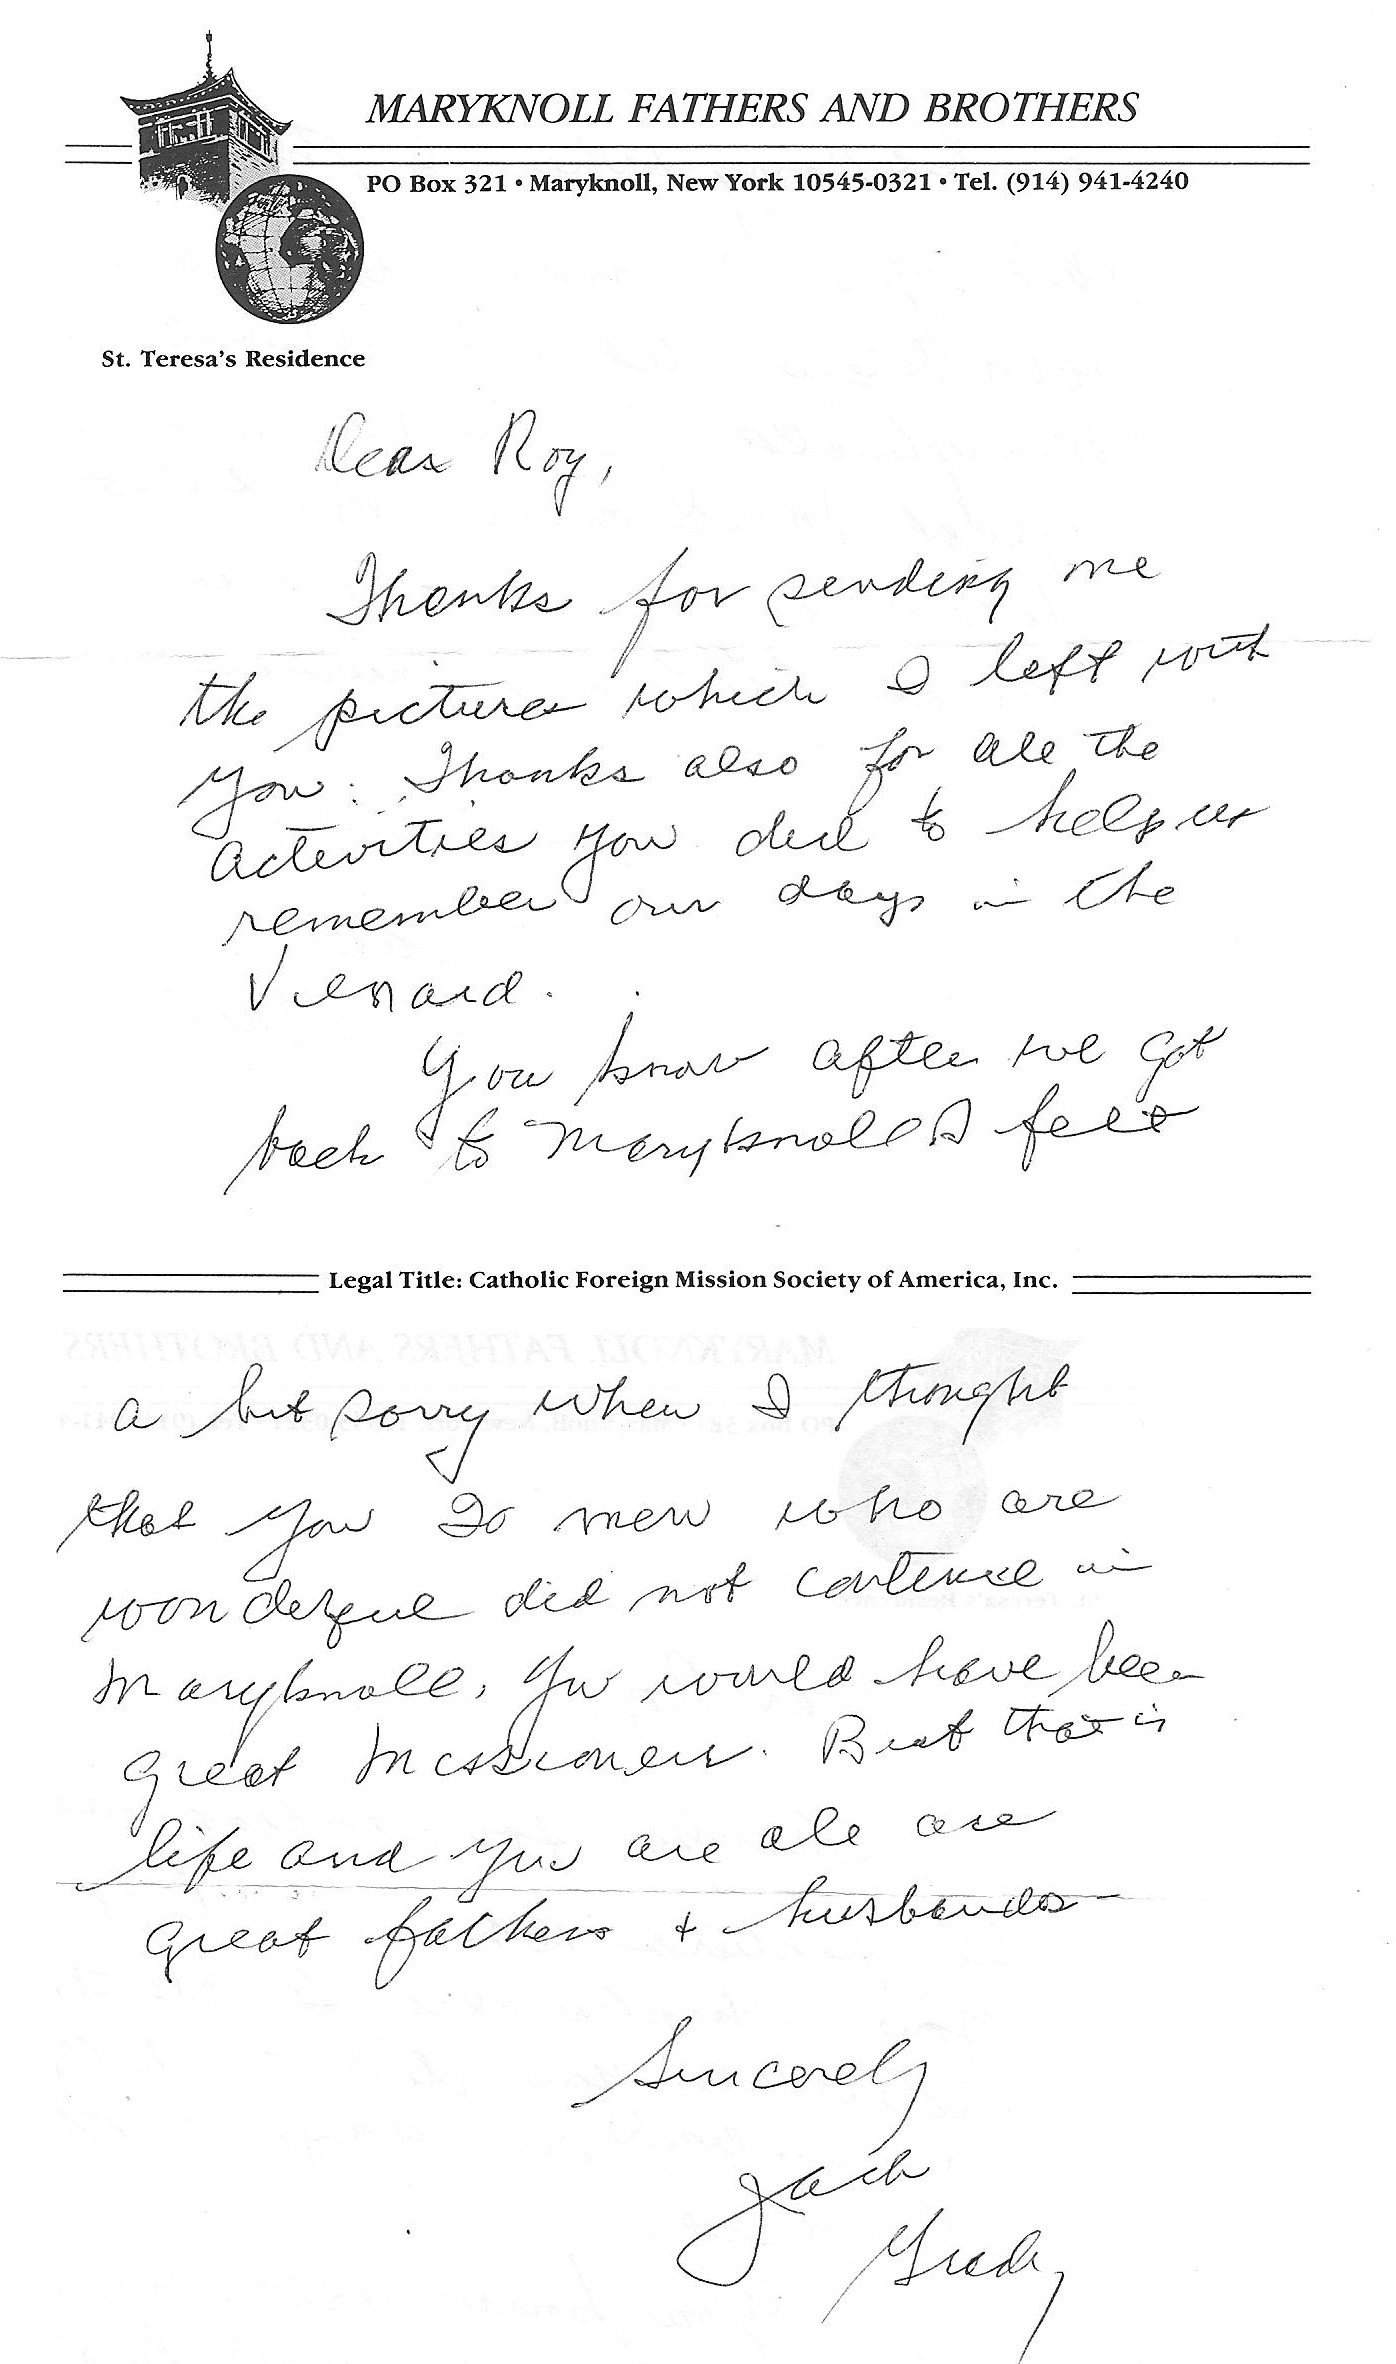 MARYKNOLL FATHERS AND BROTHERS
PO Box 321 • Maryknoll, New York 10545-0321 • Tel. (914) 941-4240
St. Teresa's Residence
Dear Roy,
Thanks for sending me
the pictures which I left with
you. Thanks also for all the
activities you did to help us
remember our days in the
Venard.
You know after we got
back to Maryknoll I felt
Legal Title: Catholic Foreign Mission Society of America, Inc.
a bit sorry when I thought
that you 20 men who are
wonderful did not continue in
Maryknoll. You would have been
great missioners. But that is
life and you are all are
great fathers + husbands
Sincerely
Jack
Grady